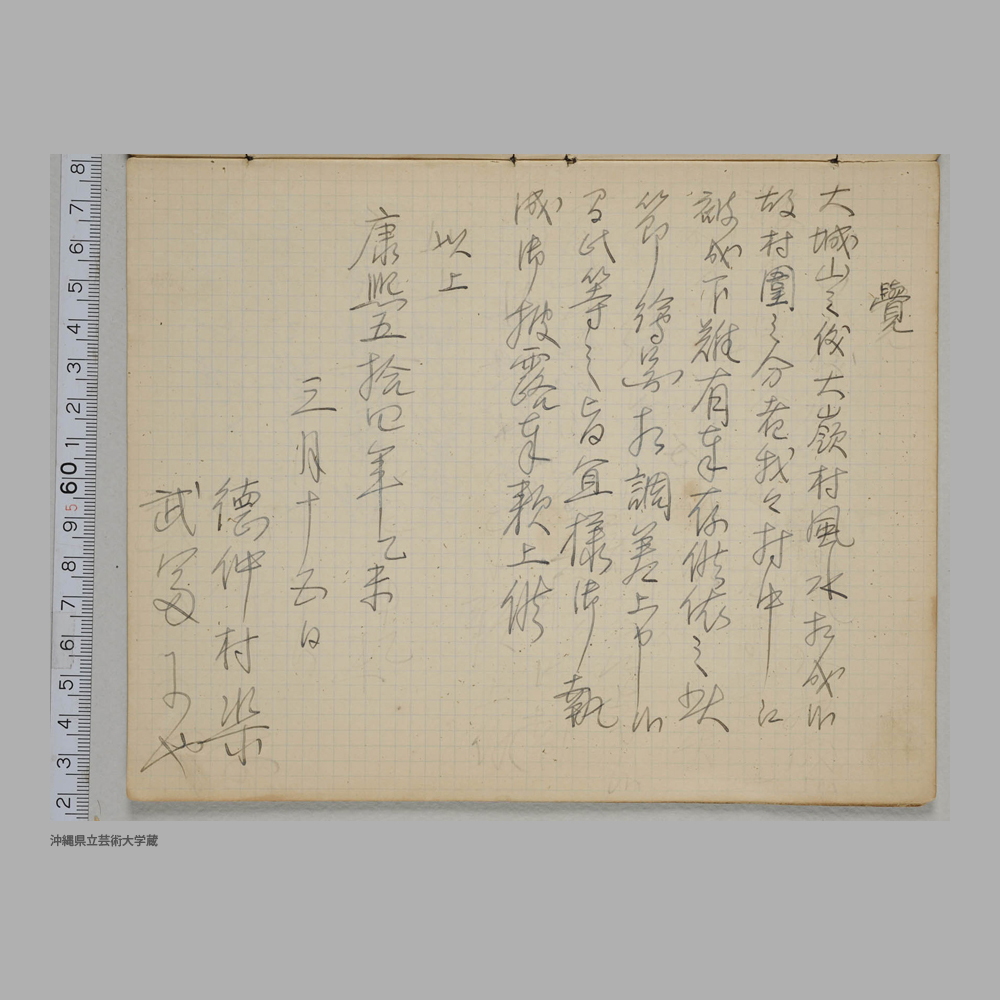 覺
大城山之儀大嶺村風水相成候
故村圍之分者我々村中江
被成下難有奉存候依之此
節繪圖相調差上申候
間此等之旨宜様御執
成御披露奉頼上候
以上
康熙五拾四年乙未
三月十五日
德仲村渠
武富
沖縄県立芸術大学蔵